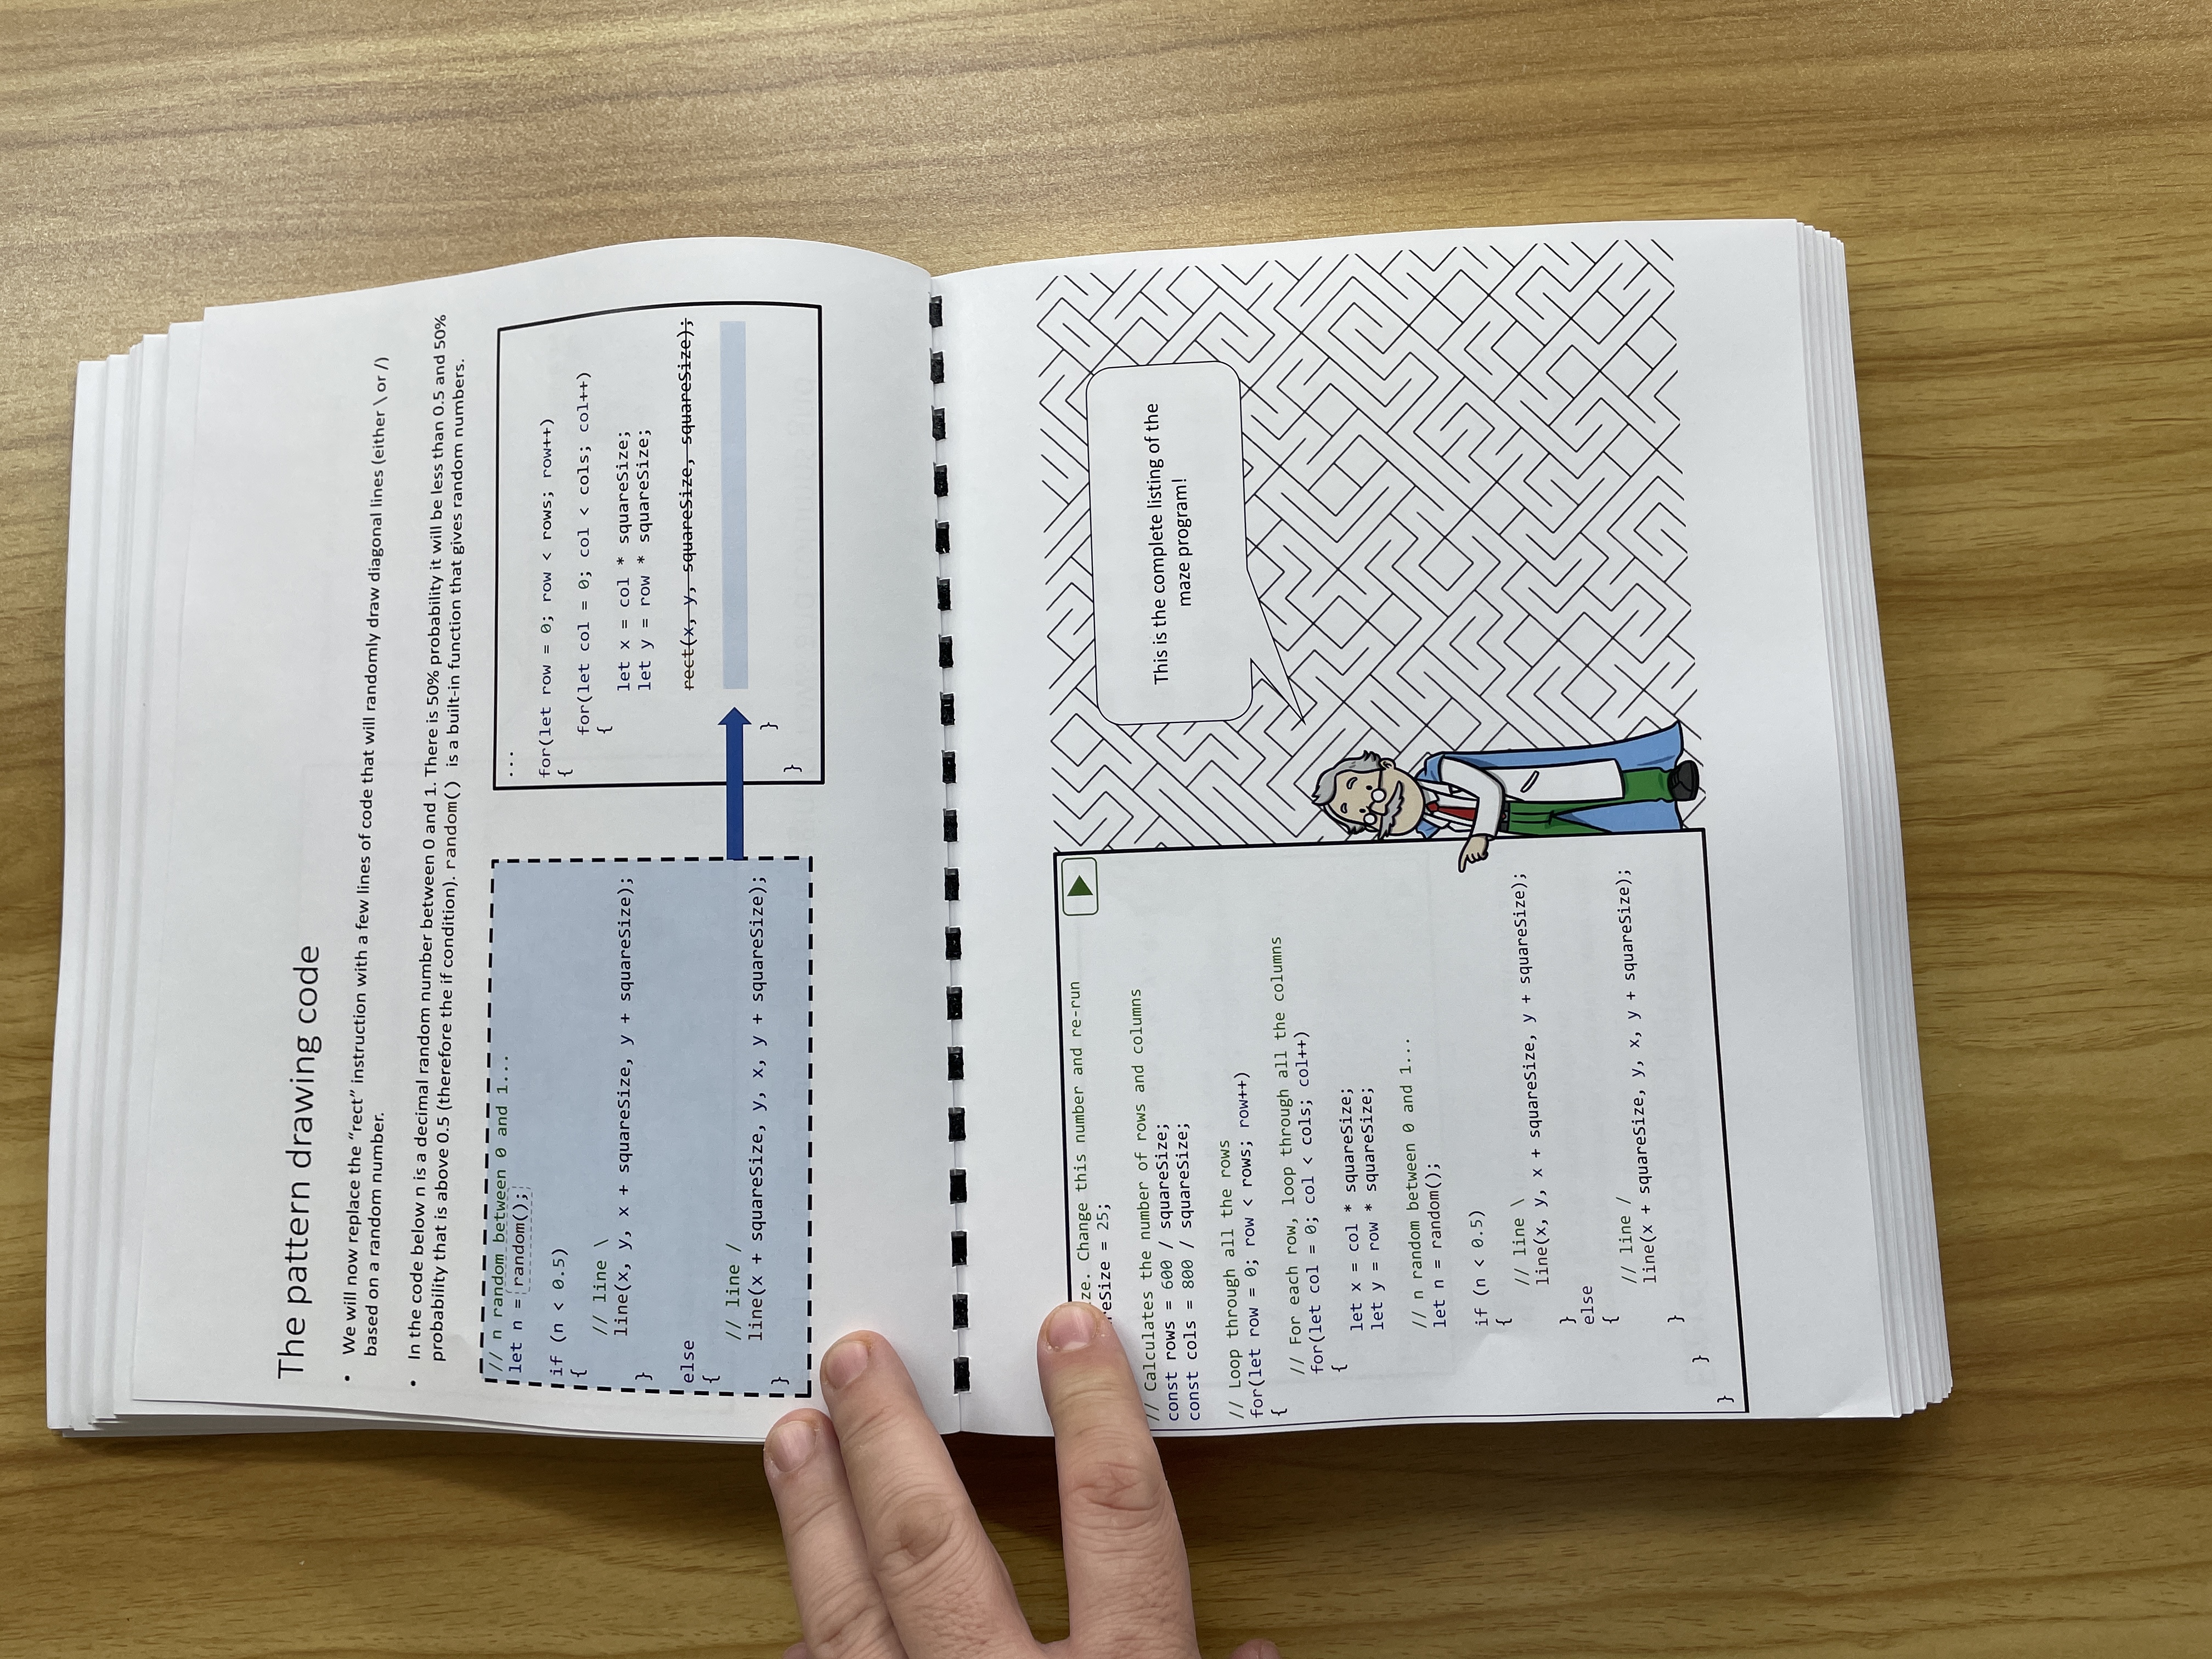 The pattern drawing code
• We will now replace the “rect” instruction with a few lines of code that will randomly draw diagonal lines (either \ or /)
based on a random number.
• In the code below n is a decimal random number between 0 and 1. There is 50% probability it will be less than 0.5 and 50%
probability that is above 0.5 (therefore the if condition). random() is a built-in function that gives random numbers.
// n random between 0 and 1...
let n = random();
if (n < 0.5)
{
// line \
line(x, y, x + squareSize, y + squareSize);
}
else
{
// line /
line(x + squareSize, y, x, y + squareSize);
}
...
for(let row = 0; row < rows; row++)
{
for(let col = 0; col < cols; col++)
{
let x = col * squareSize;
let y = row * squareSize;
rect(x, y, squareSize, squareSize);
}
}
Change this number and re-run
= 25;
// Calculates the number of rows and columns
const rows = 600 / squareSize;
const cols = 800 / squareSize;
// Loop through all the rows
for(let row = 0; row < rows; row++)
{
// For each row, loop through all the columns
for(let col = 0; col < cols; col++)
{
let x = col * squareSize;
let y = row * squareSize;
// n random between 0 and 1...
let n = random();
if (n < 0.5)
{
// line \
line(x, y, x + squareSize, y + squareSize);
}
else
{
// line /
line(x + squareSize, y, x, y + squareSize);
}
}
}
This is the complete listing of the
maze program!